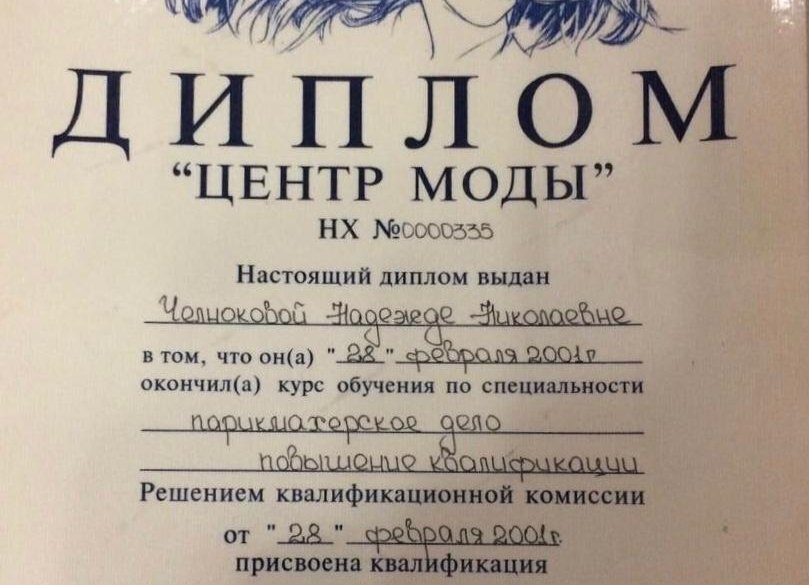 ДИПЛОМ
“ЦЕНТР МОДЫ”
НХ №0000335
Настоящий диплом выдан
Челноковой Надежде Николаевне
в том, что он(а) "28" февраля 2001г
окончил(а) курс обучения по специальности
парикмахерское дело
повышение квалификации
Решением квалификационной комиссии
от "28" февраля 2001г.
присвоена квалификация